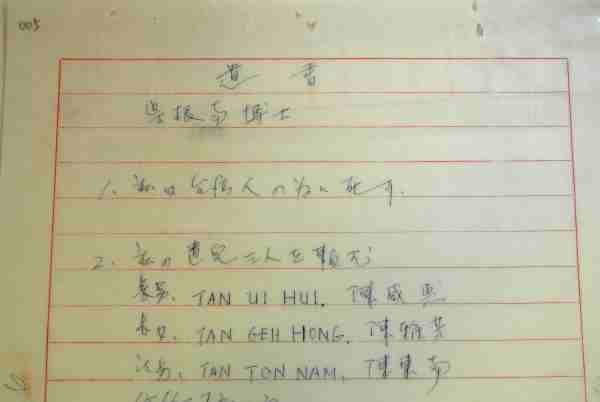 005
遺書
吳振南博士
1. 私は台湾人の為に死す.
2. 私の遺児三人を頼む
長男. TAN UI HUI. 陳威惠
長女. TAN GEH HONG. 陳雅芳
次男. TAN TON NAM. 陳東南